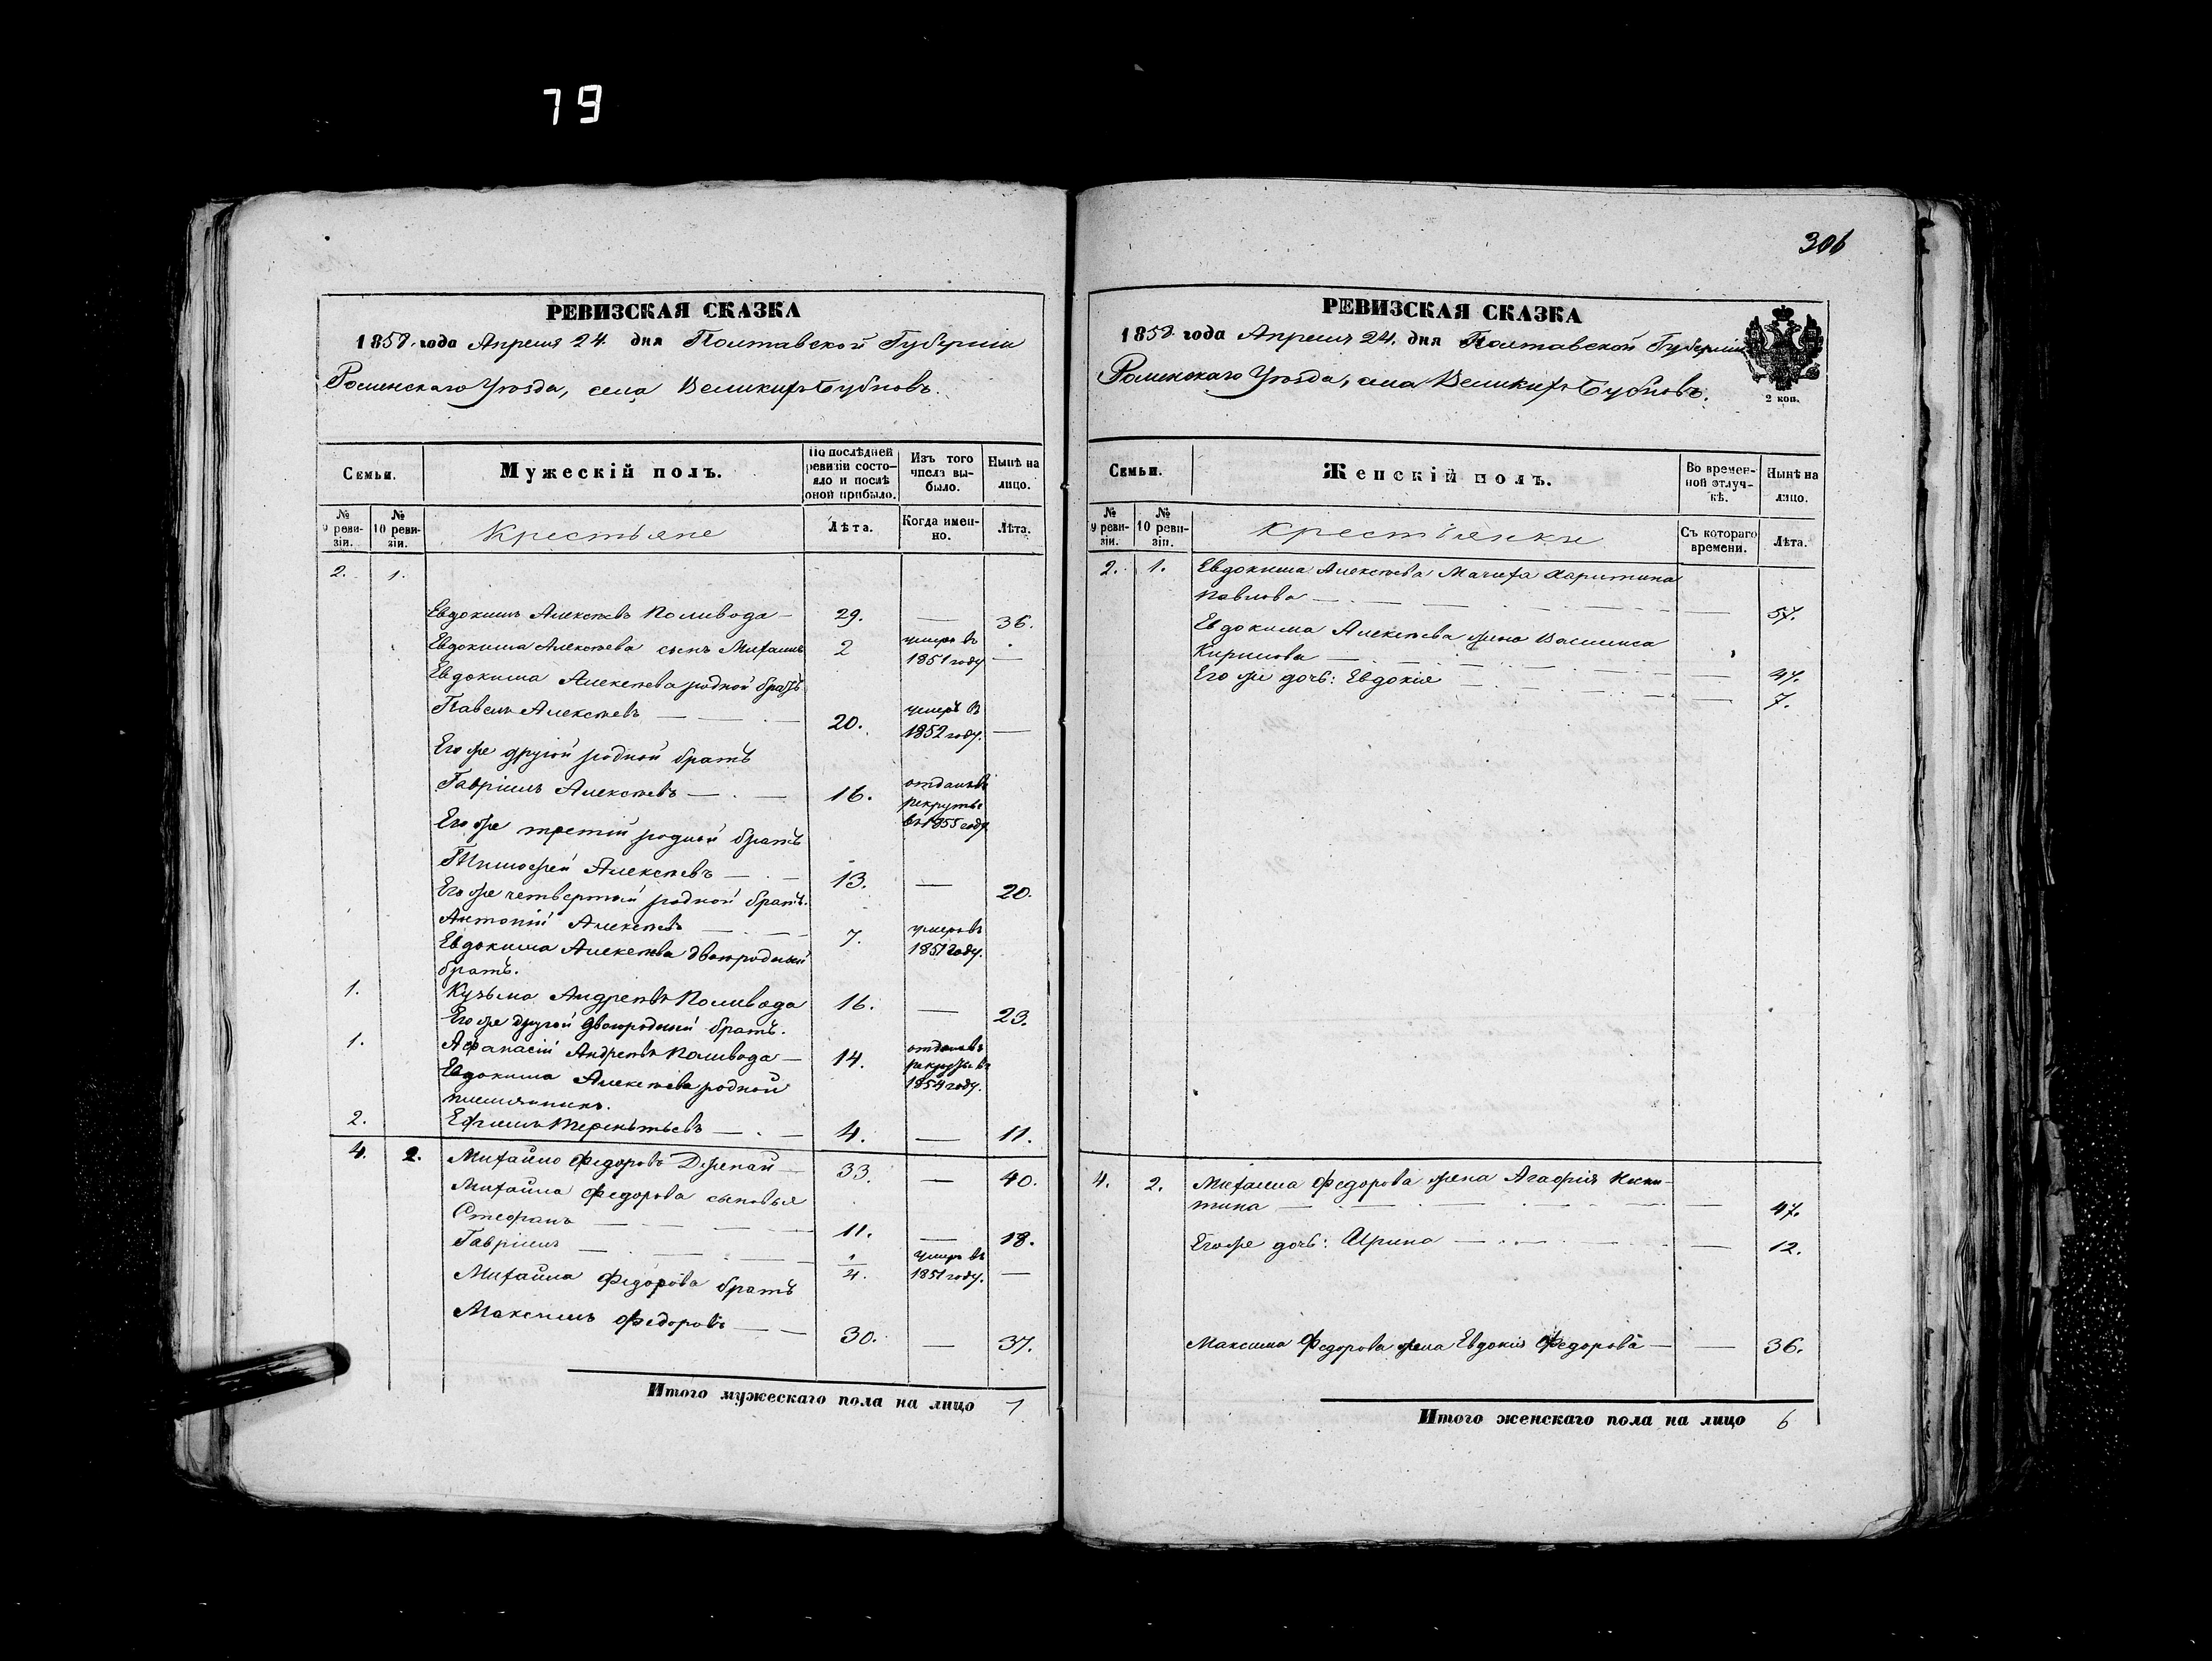 79
306
РЕВИЗСКАЯ СКАЗКА
1858. года Апреля 24. дня Полтавской Губерніи
Роменскаго Уѣзда, села Великихъ Бубновъ.
Семьи.
Мужескій полъ.
По послѣдней ревизіи состояло и послѣ оной прибыло.
Изъ того числа выбыло.
Нынѣ на лицо.
№ 9 ревизіи.
№ 10 ревизіи.
Крестьяне
Лѣта.
Когда именно.
Лѣта.
2. 1.
Евдокимъ Алексѣевъ Поливода — 29. — 36.
Евдокима Алексѣева сынъ Михаилъ 2 умеръ въ 1851 году —
Евдокима Алексѣева родной братъ
Павелъ Алексѣевъ — — 20. умеръ въ 1852 году. —
Его же другой родной братъ
Гавріилъ Алексѣевъ — . — 16. отданъ въ рекруты въ 1855 году
Его же третій родной братъ
Тимофей Алексѣевъ — . — 13. — 20.
Его же четвертый родной братъ.
Антоній Алексѣевъ — — 7. умеръ въ 1851 году.
Евдокима Алексѣева двоюродный
братъ.
1. Кузьма Андреевъ Поливода 16. — 23.
Его же другой двоюродный братъ.
1. Афанасій Андреевъ Поливода — 14. отданъ въ рекруты въ 1854 году.
Евдокима Алексѣева родной
племянникъ.
2. Ефимъ Терентьевъ — . — 4. — 11.
4. 2. Михайло Федоровъ Держай — 33. — 40.
Михайла Федорова сыновья
Стефанъ — — — — 11. — 18.
Гавріилъ — . — — 1/4. умеръ въ 1851 году. —
Михайла Федорова братъ
Максимъ Федоровъ — — 30. — 37.
Итого мужескаго пола на лицо 7
РЕВИЗСКАЯ СКАЗКА
1858. года Апреля 24. дня Полтавской Губерніи
Роменскаго Уѣзда, села Великихъ Бубновъ.
2 коп.
Семьи.
Женскій полъ.
Во временной отлучкѣ.
Нынѣ на лицо.
№ 9 ревизіи.
№ 10 ревизіи.
Крестьянки
Съ котораго времени.
Лѣта.
2. 1. Евдокима Алексѣева Мачиха Харитина
Павлова — — — 57.
Евдокима Алексѣева жена Василиса
Кирилова — — — 47.
Его же дочь: Евдокія — — 7.
4. 2. Михайла Федорова жена Агафія Ники-
тина — — — 47.
Его же дочь: Ирина — — 12.
Максима Федорова жена Евдокія Федорова — — 36.
Итого женскаго пола на лицо 6